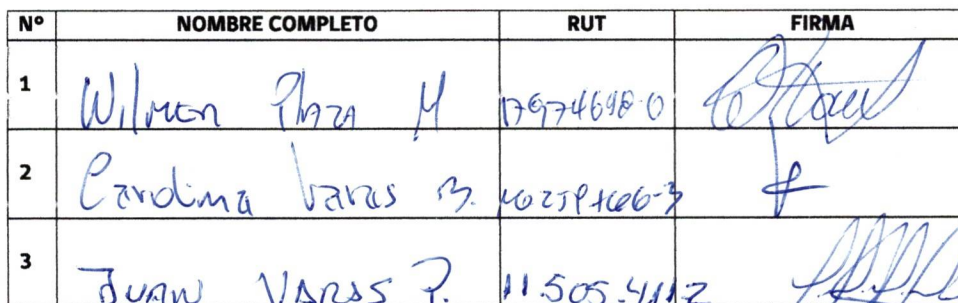 Nº NOMBRE COMPLETO RUT FIRMA
1 Wilmer Plaza M 17974698-0
2 Carolina Varas B.
3 Juan Varas P. 11.505.411-2